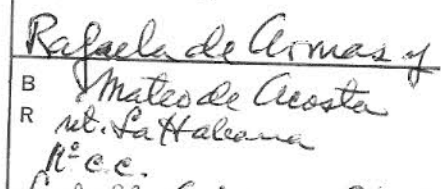 Rafaela de Armas y
B Mateo de Acosta
R nt. La Habana
Rº c.c.